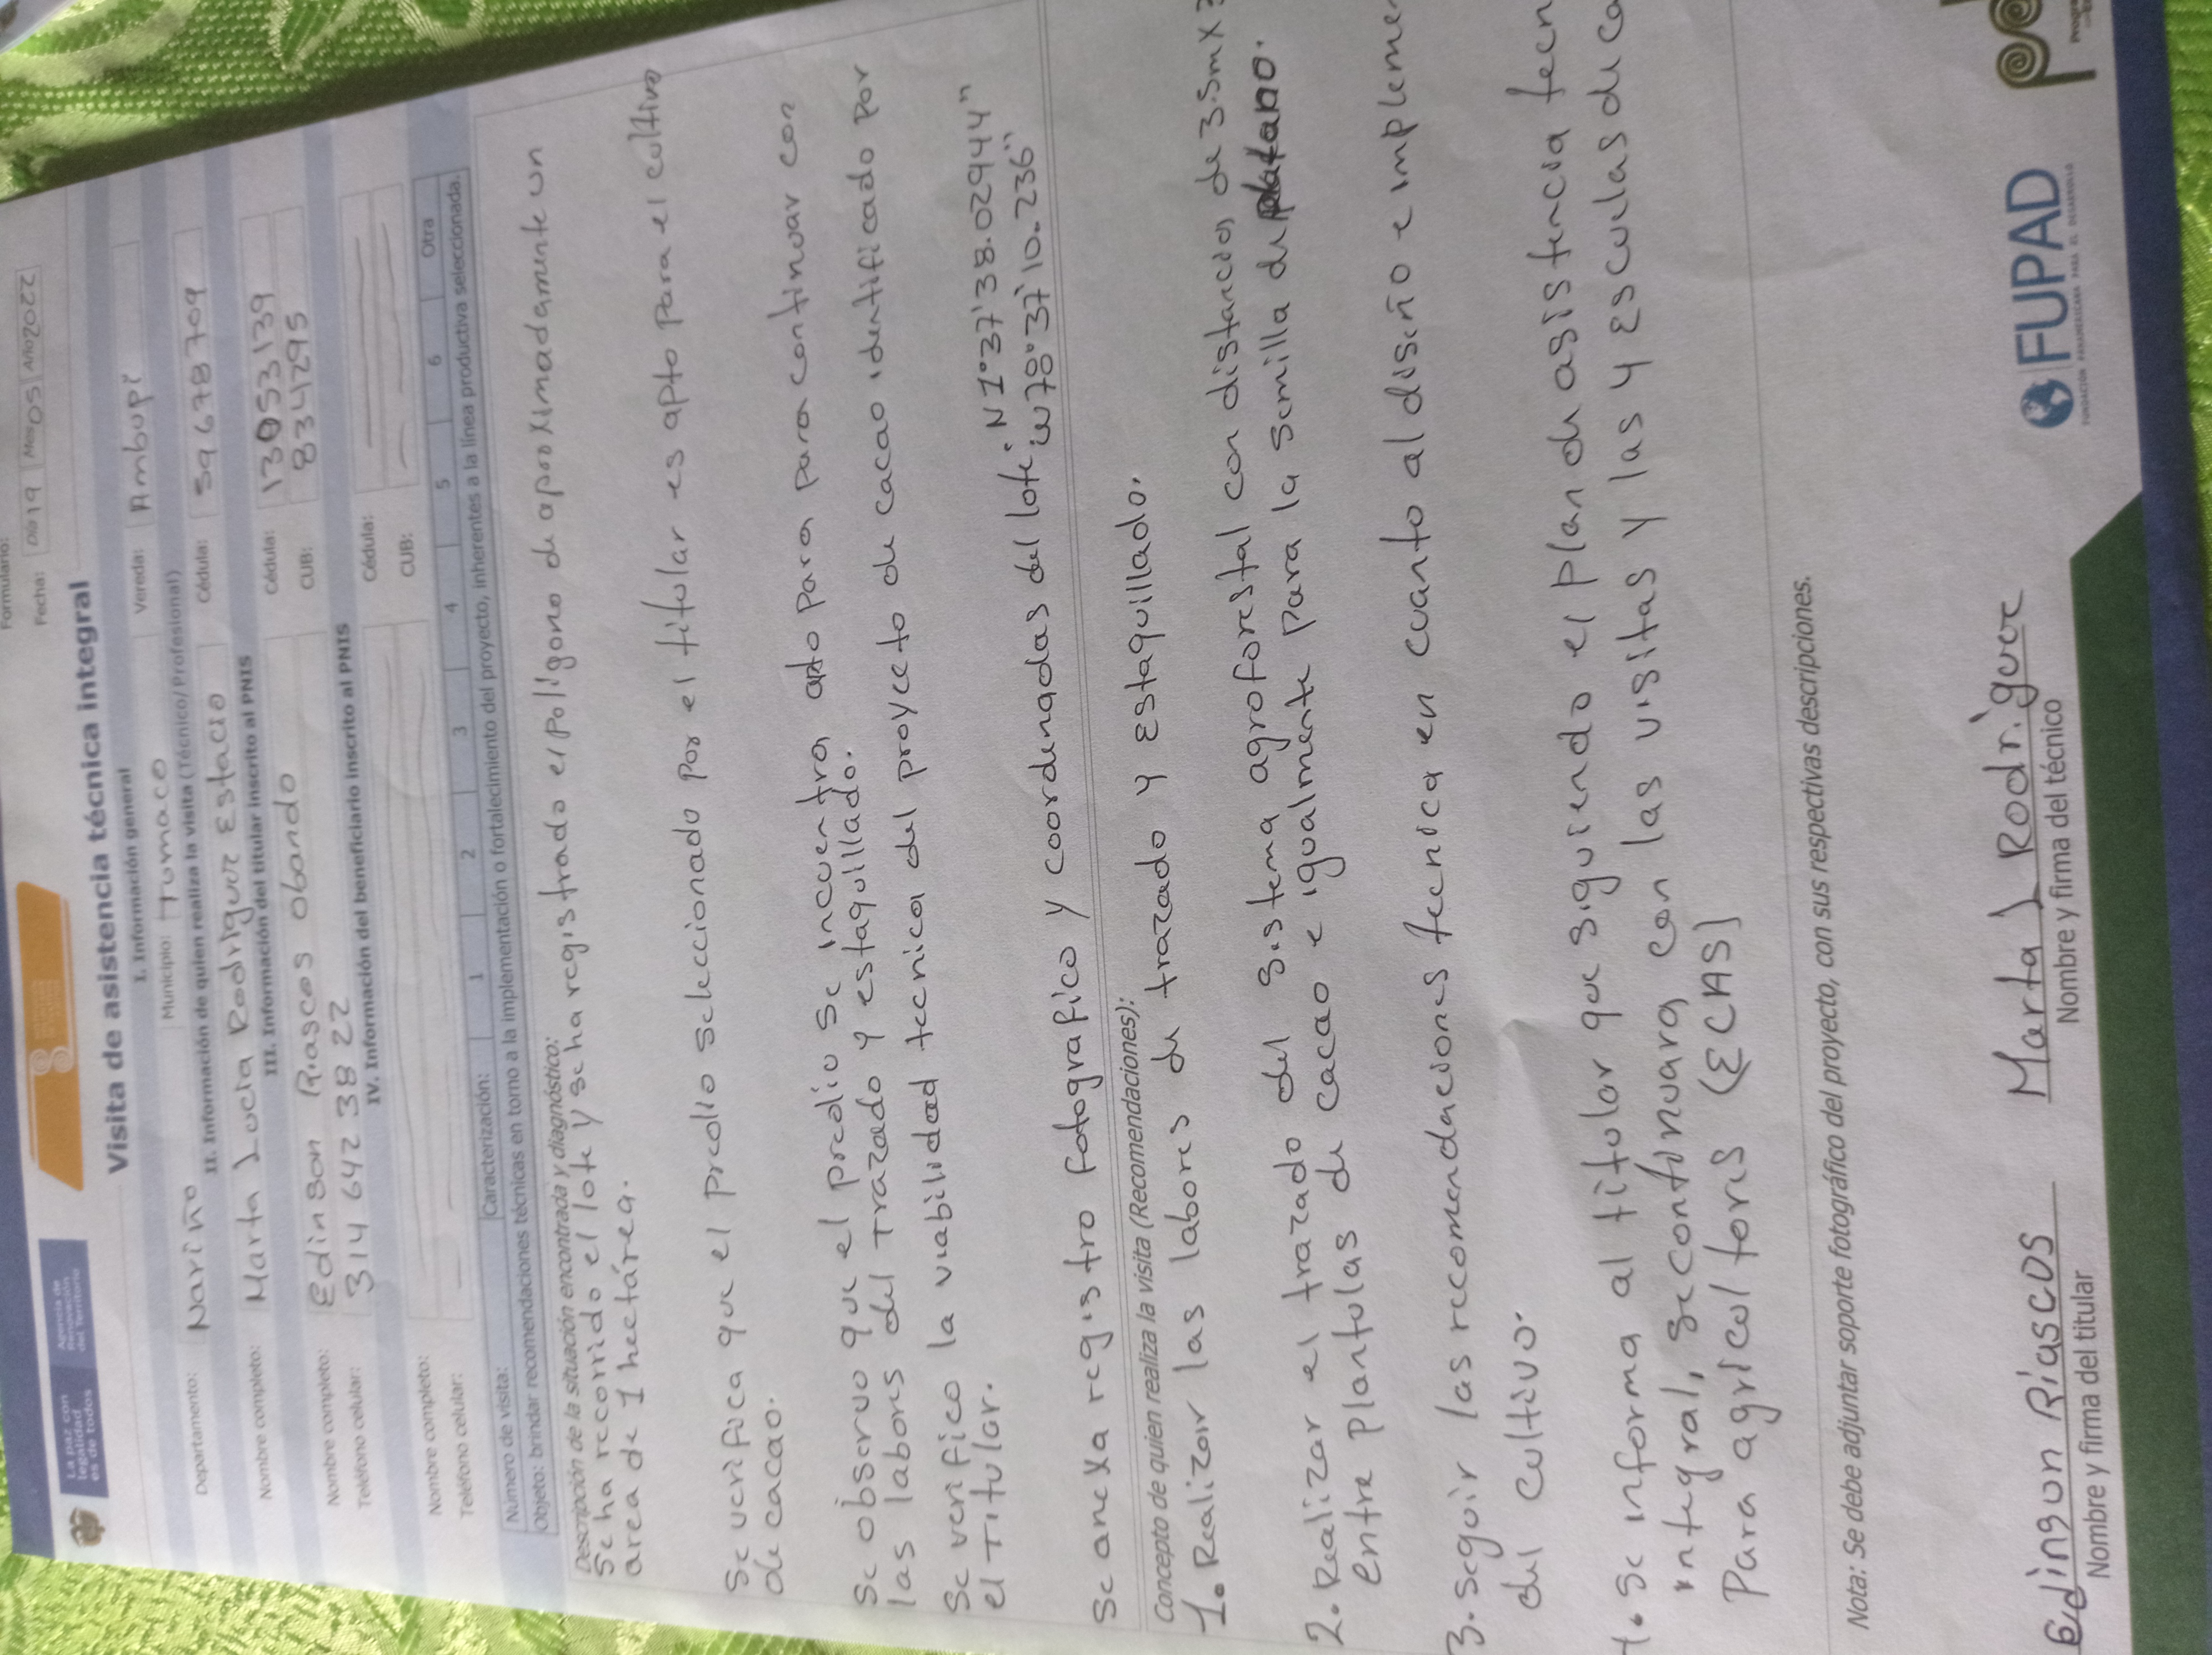 Formulario:
Fecha: Día 19 Mes 05 Año 2022
La paz con
legalidad
es de todos
Agencia de
Renovación
del Territorio
Visita de asistencia técnica integral
I. Información general
Departamento: Nariño Municipio: Tumaco Vereda: Ambupí
II. Información de quien realiza la visita (Técnico/Profesional)
Nombre completo: Marta Lucia Rodríguez Estacio Cédula: 59678709
III. Información del titular inscrito al PNIS
Nombre completo: Edinson Riascos Obando Cédula: 13053139
Teléfono celular: 314 642 38 22 CUB: 8341295
IV. Información del beneficiario inscrito al PNIS
Nombre completo: Cédula:
Teléfono celular: CUB:
Número de visita: Caracterización: 1 2 3 4 5 6 Otra
Objeto: brindar recomendaciones técnicas en torno a la implementación o fortalecimiento del proyecto, inherentes a la línea productiva seleccionada.
Descripción de la situación encontrada y diagnóstico:
Se ha recorrido el lote y se ha registrado el polígono de aproximadamente un
area de 1 hectárea.
Se verifica que el predio seleccionado por el titular es apto para el cultivo
de cacao.
Se observo que el predio se incuentra apto para para continuar con
las labores del trazado y estaquillado.
Se verifico la viabilidad tecnica del proyecto de cacao identificado por
el titular.
Se anexa registro fotografico y coordenadas del lote: N 1°37'38.02944"
W78°37'10.236"
Concepto de quien realiza la visita (Recomendaciones):
1. Realizar las labores de trazado y estaquillado.
2. Realizar el trazado del sistema agroforestal con distancias de 3.5mx3
entre plantulas de cacao e igualmente para la semilla de platano.
3. Seguir las recomendaciones tecnica en cuanto al diseño e impleme
del cultivo.
4. Se informa al titular que siguiendo el plan de asistencia tecn
integral, se continuara con las visitas y las 4 escuelas de ca
Para agricultores (ECAS)
Nota: Se debe adjuntar soporte fotográfico del proyecto, con sus respectivas descripciones.
Edingson Riascos Marta L Rodriguez
Nombre y firma del titular Nombre y firma del técnico
FUPAD
FUNDACIÓN PANAMERICANA PARA EL DESARROLLO